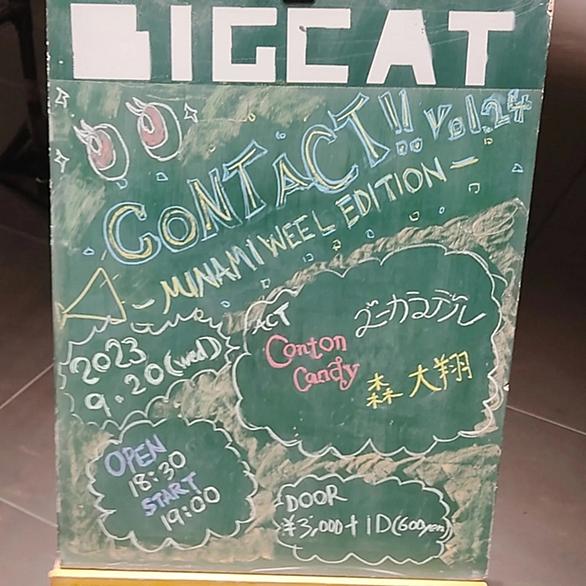 BIGCAT
CONTACT!! Vol.24
- MINAMI WEEL EDITION -
2023
9.20(wed)
ACT
ズーカラデル
Conton
Candy
森 大翔
OPEN
18:30
START
19:00
DOOR
¥3,000+1D(600yen)